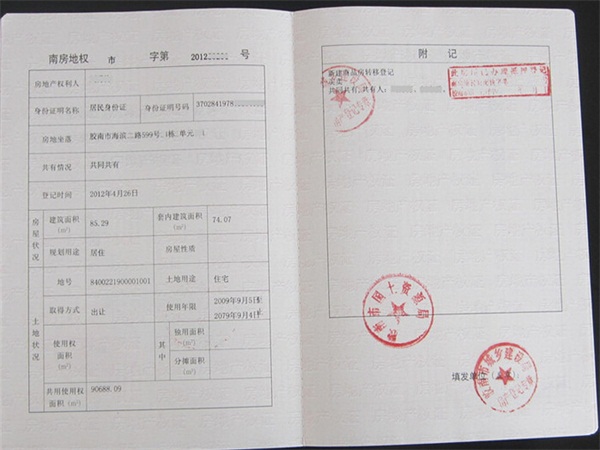 南房地权 市 字第 2012 号
房地产权利人
身份证明名称 居民身份证 身份证明号码 3702841978
房地坐落 胶南市海滨二路599号 1栋 单元
共有情况 共同共有
登记时间 2012年4月26日
房屋状况
建筑面积(㎡) 85.29 套内建筑面积(㎡) 74.07
规划用途 居住 房屋性质
土地状况
地号 8400221900001001 土地用途 住宅
取得方式 出让 使用年限 2009年9月5日 2079年9月4日
使用权面积(㎡) 其中 独用面积(㎡)
分摊面积(㎡)
共用使用权面积(㎡) 90688.09
附 记
新建商品房转移登记
共同共有;共有人:
胶南市国土资源局
胶南市城乡建设局
填发单位